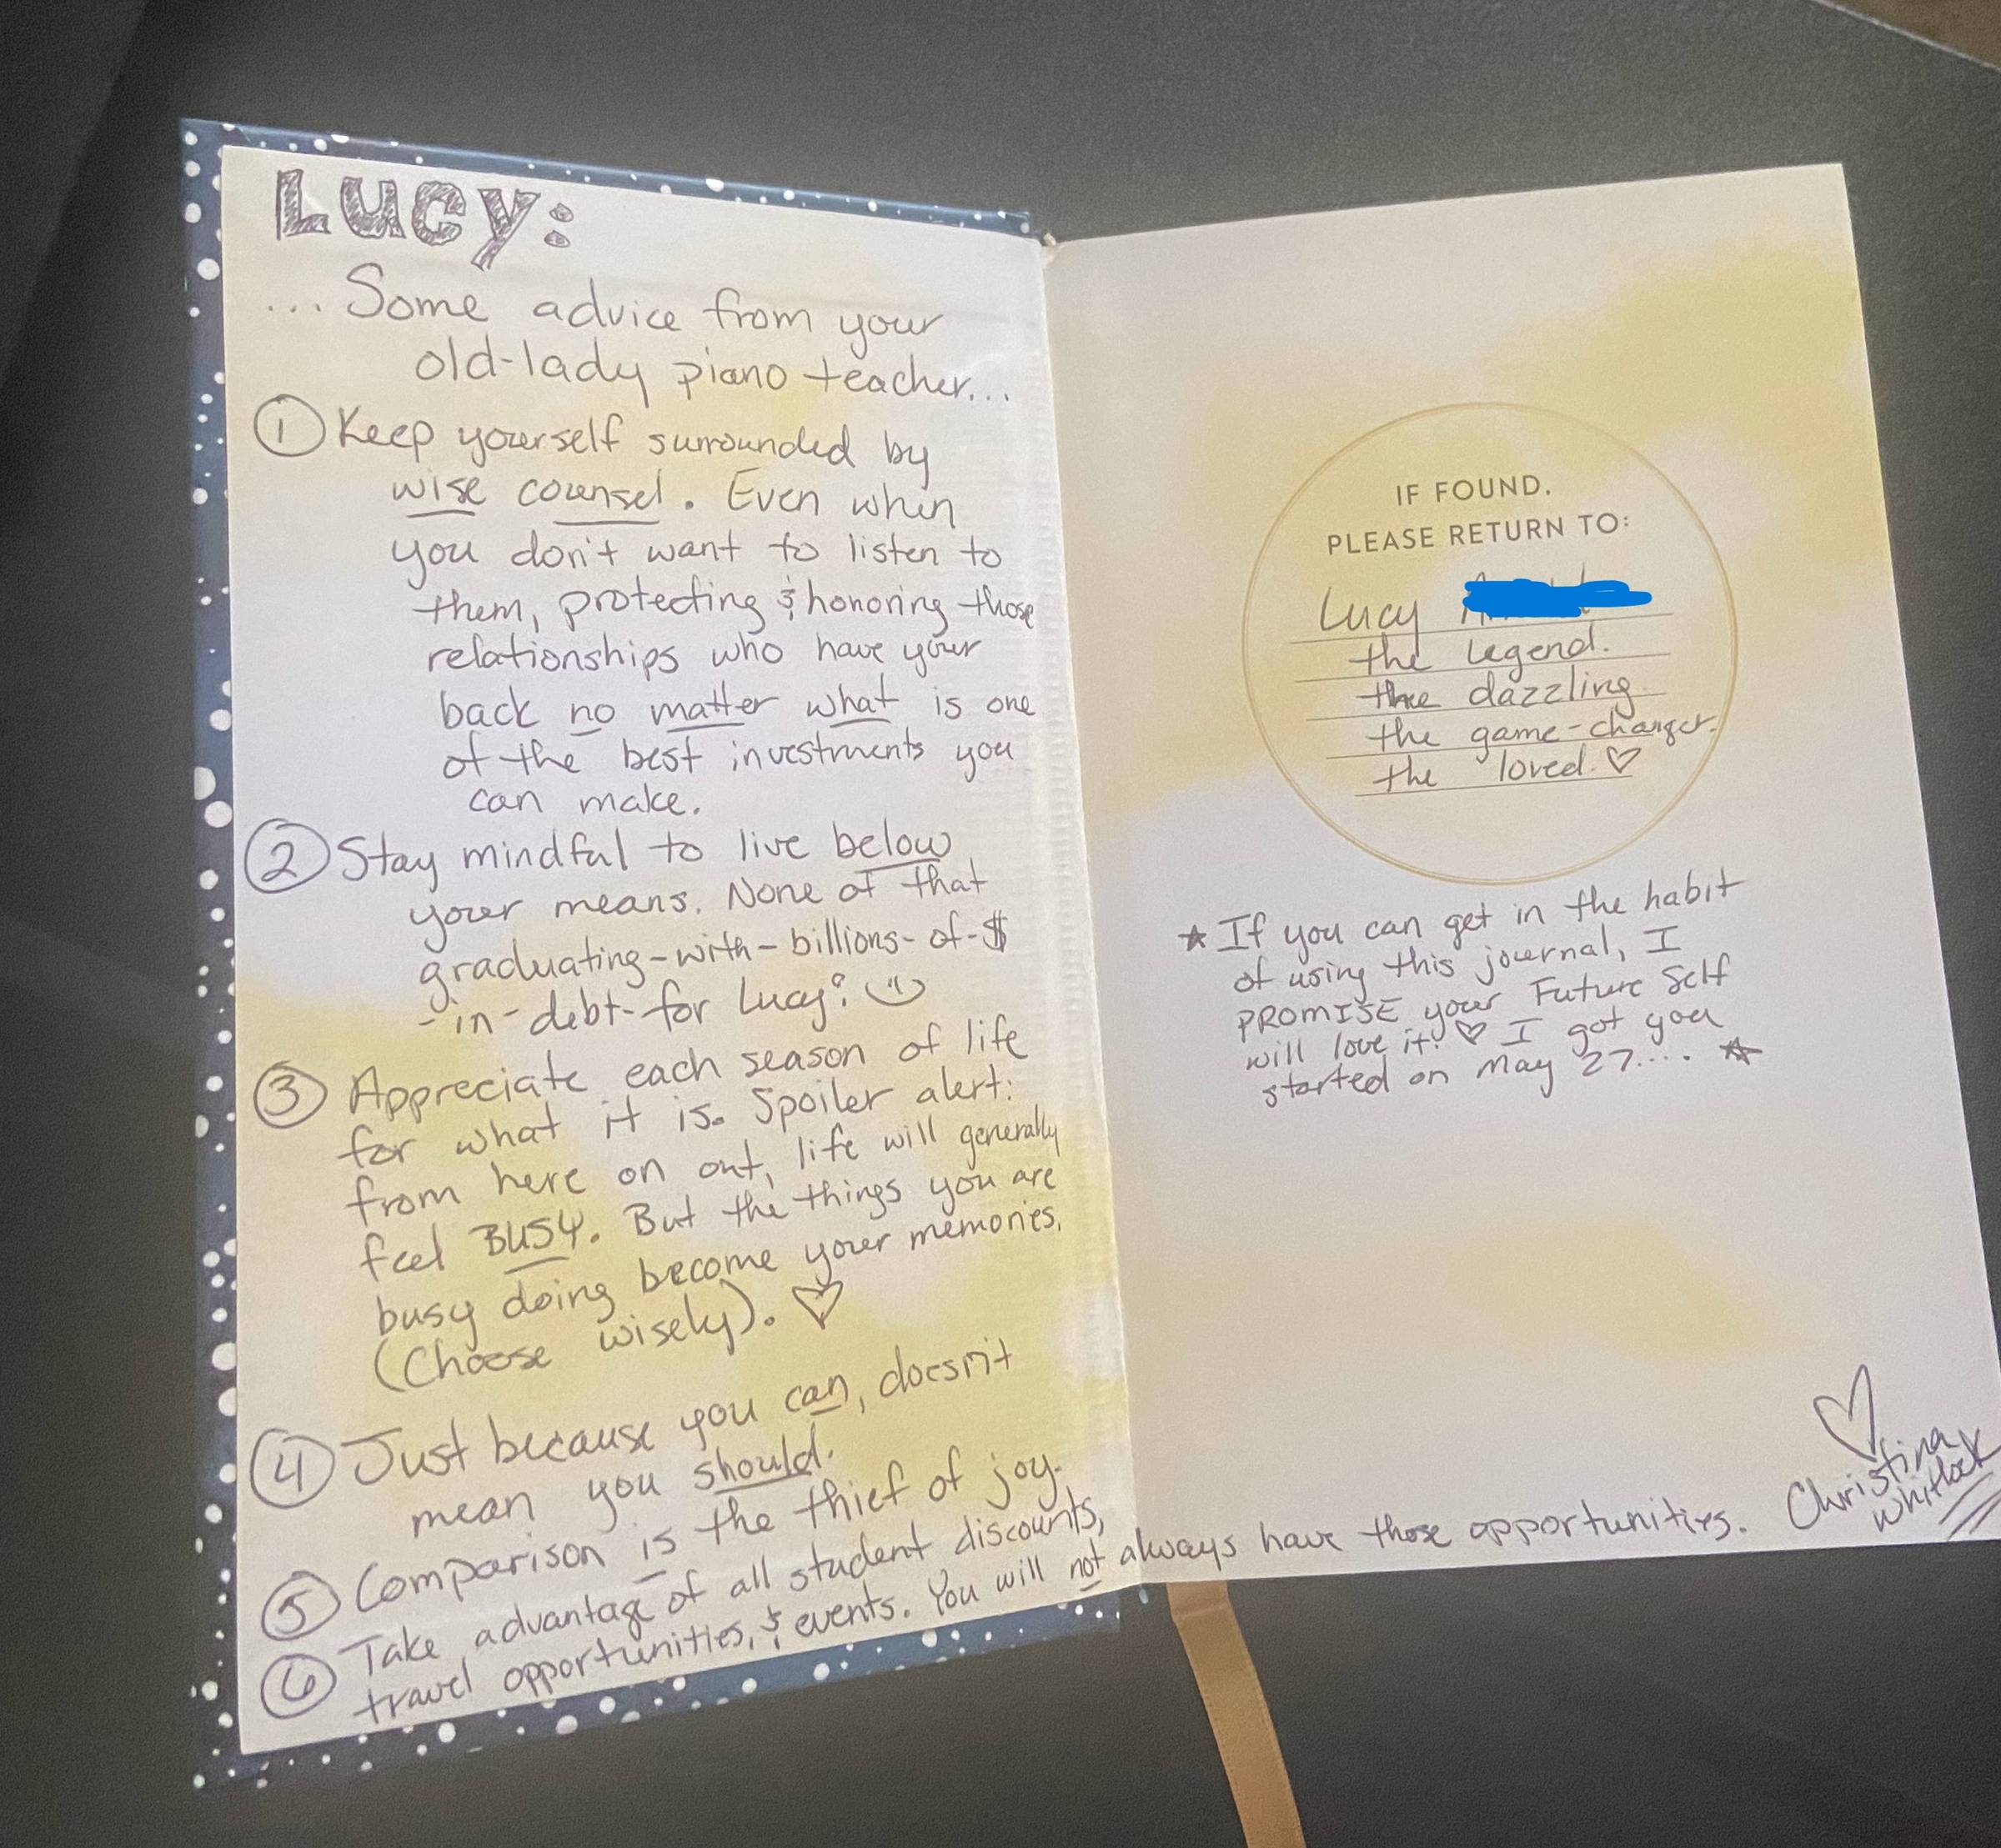 Lucy:
... Some advice from your
old-lady piano teacher...
① Keep yourself surrounded by
wise counsel. Even when
you don't want to listen to
them, protecting & honoring those
relationships who have your
back no matter what is one
of the best investments you
can make.
② Stay mindful to live below
your means. None of that
graduating-with-billions-of-$
-in-debt-for Lucy! :)
③ Appreciate each season of life
for what it is. Spoiler alert:
from here on out, life will generally
feel BUSY. But the things you are
busy doing become your memories.
(Choose wisely). ♡
④ Just because you can, doesn't
mean you should.
⑤ Comparison is the thief of joy.
⑥ Take advantage of all student discounts,
travel opportunities, & events. You will not always have those opportunities.
IF FOUND,
PLEASE RETURN TO:
Lucy
the legend.
the dazzling.
the game-changer.
the loved. ♡
★ If you can get in the habit
of using this journal, I
PROMISE your Future Self
will love it! ♡ I got you
started on May 27.... ★
♡
Christina
Whitlock